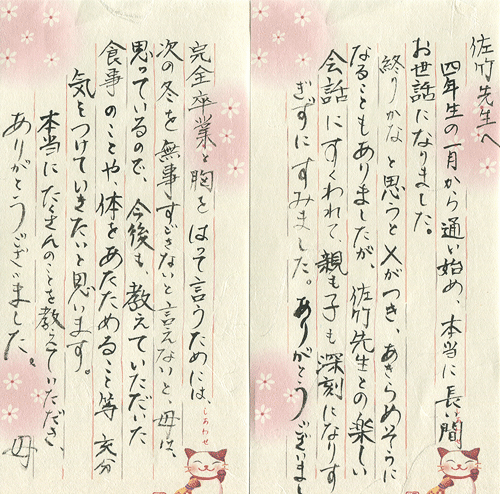 佐竹先生へ
四年生の一月から通い始め、本当に長い間
お世話になりました。
終りかな と思うと✕がつき、あきらめそうに
なることもありましたが、佐竹先生との楽しい
会話にすくわれて、親も子も深刻になりす
ぎずに すみました。ありがとうございまし
完全卒業と胸をはって言うためには、
次の冬を無事すごさないと言えないと、母は、
思っているので、今後も、教えていただいた
食事のことや、体をあたためること等 充分
気をつけていきたいと思います。
本当にたくさんのことを教えていただき、
ありがとうございました。 母
しあわせ